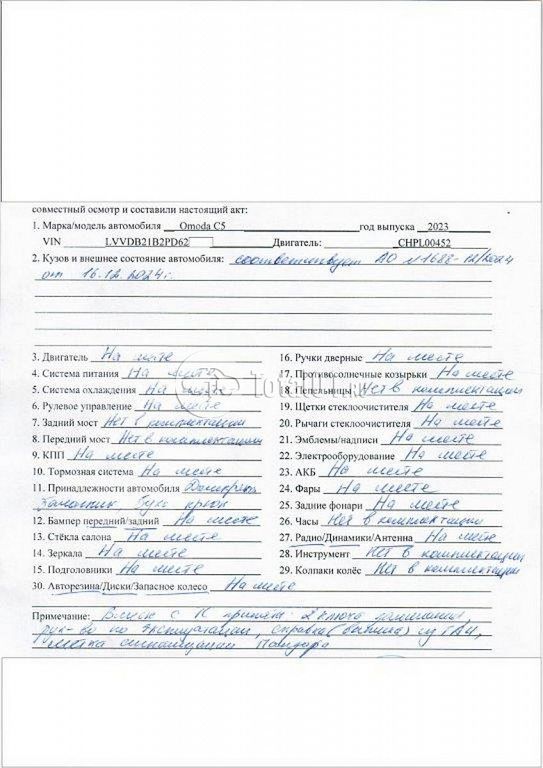 совместный осмотр и составили настоящий акт:
1. Марка/модель автомобиля Omoda C5 год выпуска 2023
VIN LVVDB21B2PD62 Двигатель: CHPL00452
2. Кузов и внешнее состояние автомобиля: соответствует АО №1688-12/2024
от 16.12.2024г.
3. Двигатель На месте
4. Система питания На месте
5. Система охлаждения На месте
6. Рулевое управление На месте
7. Задний мост Нет в комплектации
8. Передний мост Нет в комплектации
9. КПП На месте
10. Тормозная система На месте
11. Принадлежности автомобиля Домкрат,
букс. крюк
12. Бампер передний/задний На месте
13. Стёкла салона На месте
14. Зеркала На месте
15. Подголовники На месте
16. Ручки дверные На месте
17. Противосолнечные козырьки На месте
18. Пепельницы Нет в комплектации
19. Щетки стеклоочистителя На месте
20. Рычаги стеклоочистителя На месте
21. Эмблемы/надписи На месте
22. Электрооборудование На месте
23. АКБ На месте
24. Фары На месте
25. Задние фонари На месте
26. Часы Нет в комплектации
27. Радио/Динамики/Антенна На месте
28. Инструмент Нет в комплектации
29. Колпаки колёс Нет в комплектации
30. Авторезина/Диски/Запасное колесо На месте
Примечание: 2 ключа
рук-во по эксплуатации, справка (выписка) из ГАИ,
метка сигнализации Пандора